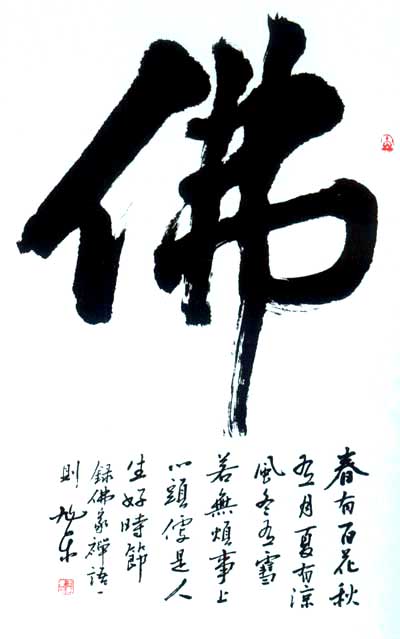 佛
春有百花秋
有月夏有涼
風冬有雪
若無煩事上
心頭便是人
生好時節
録佛家禪語一
則 旭东